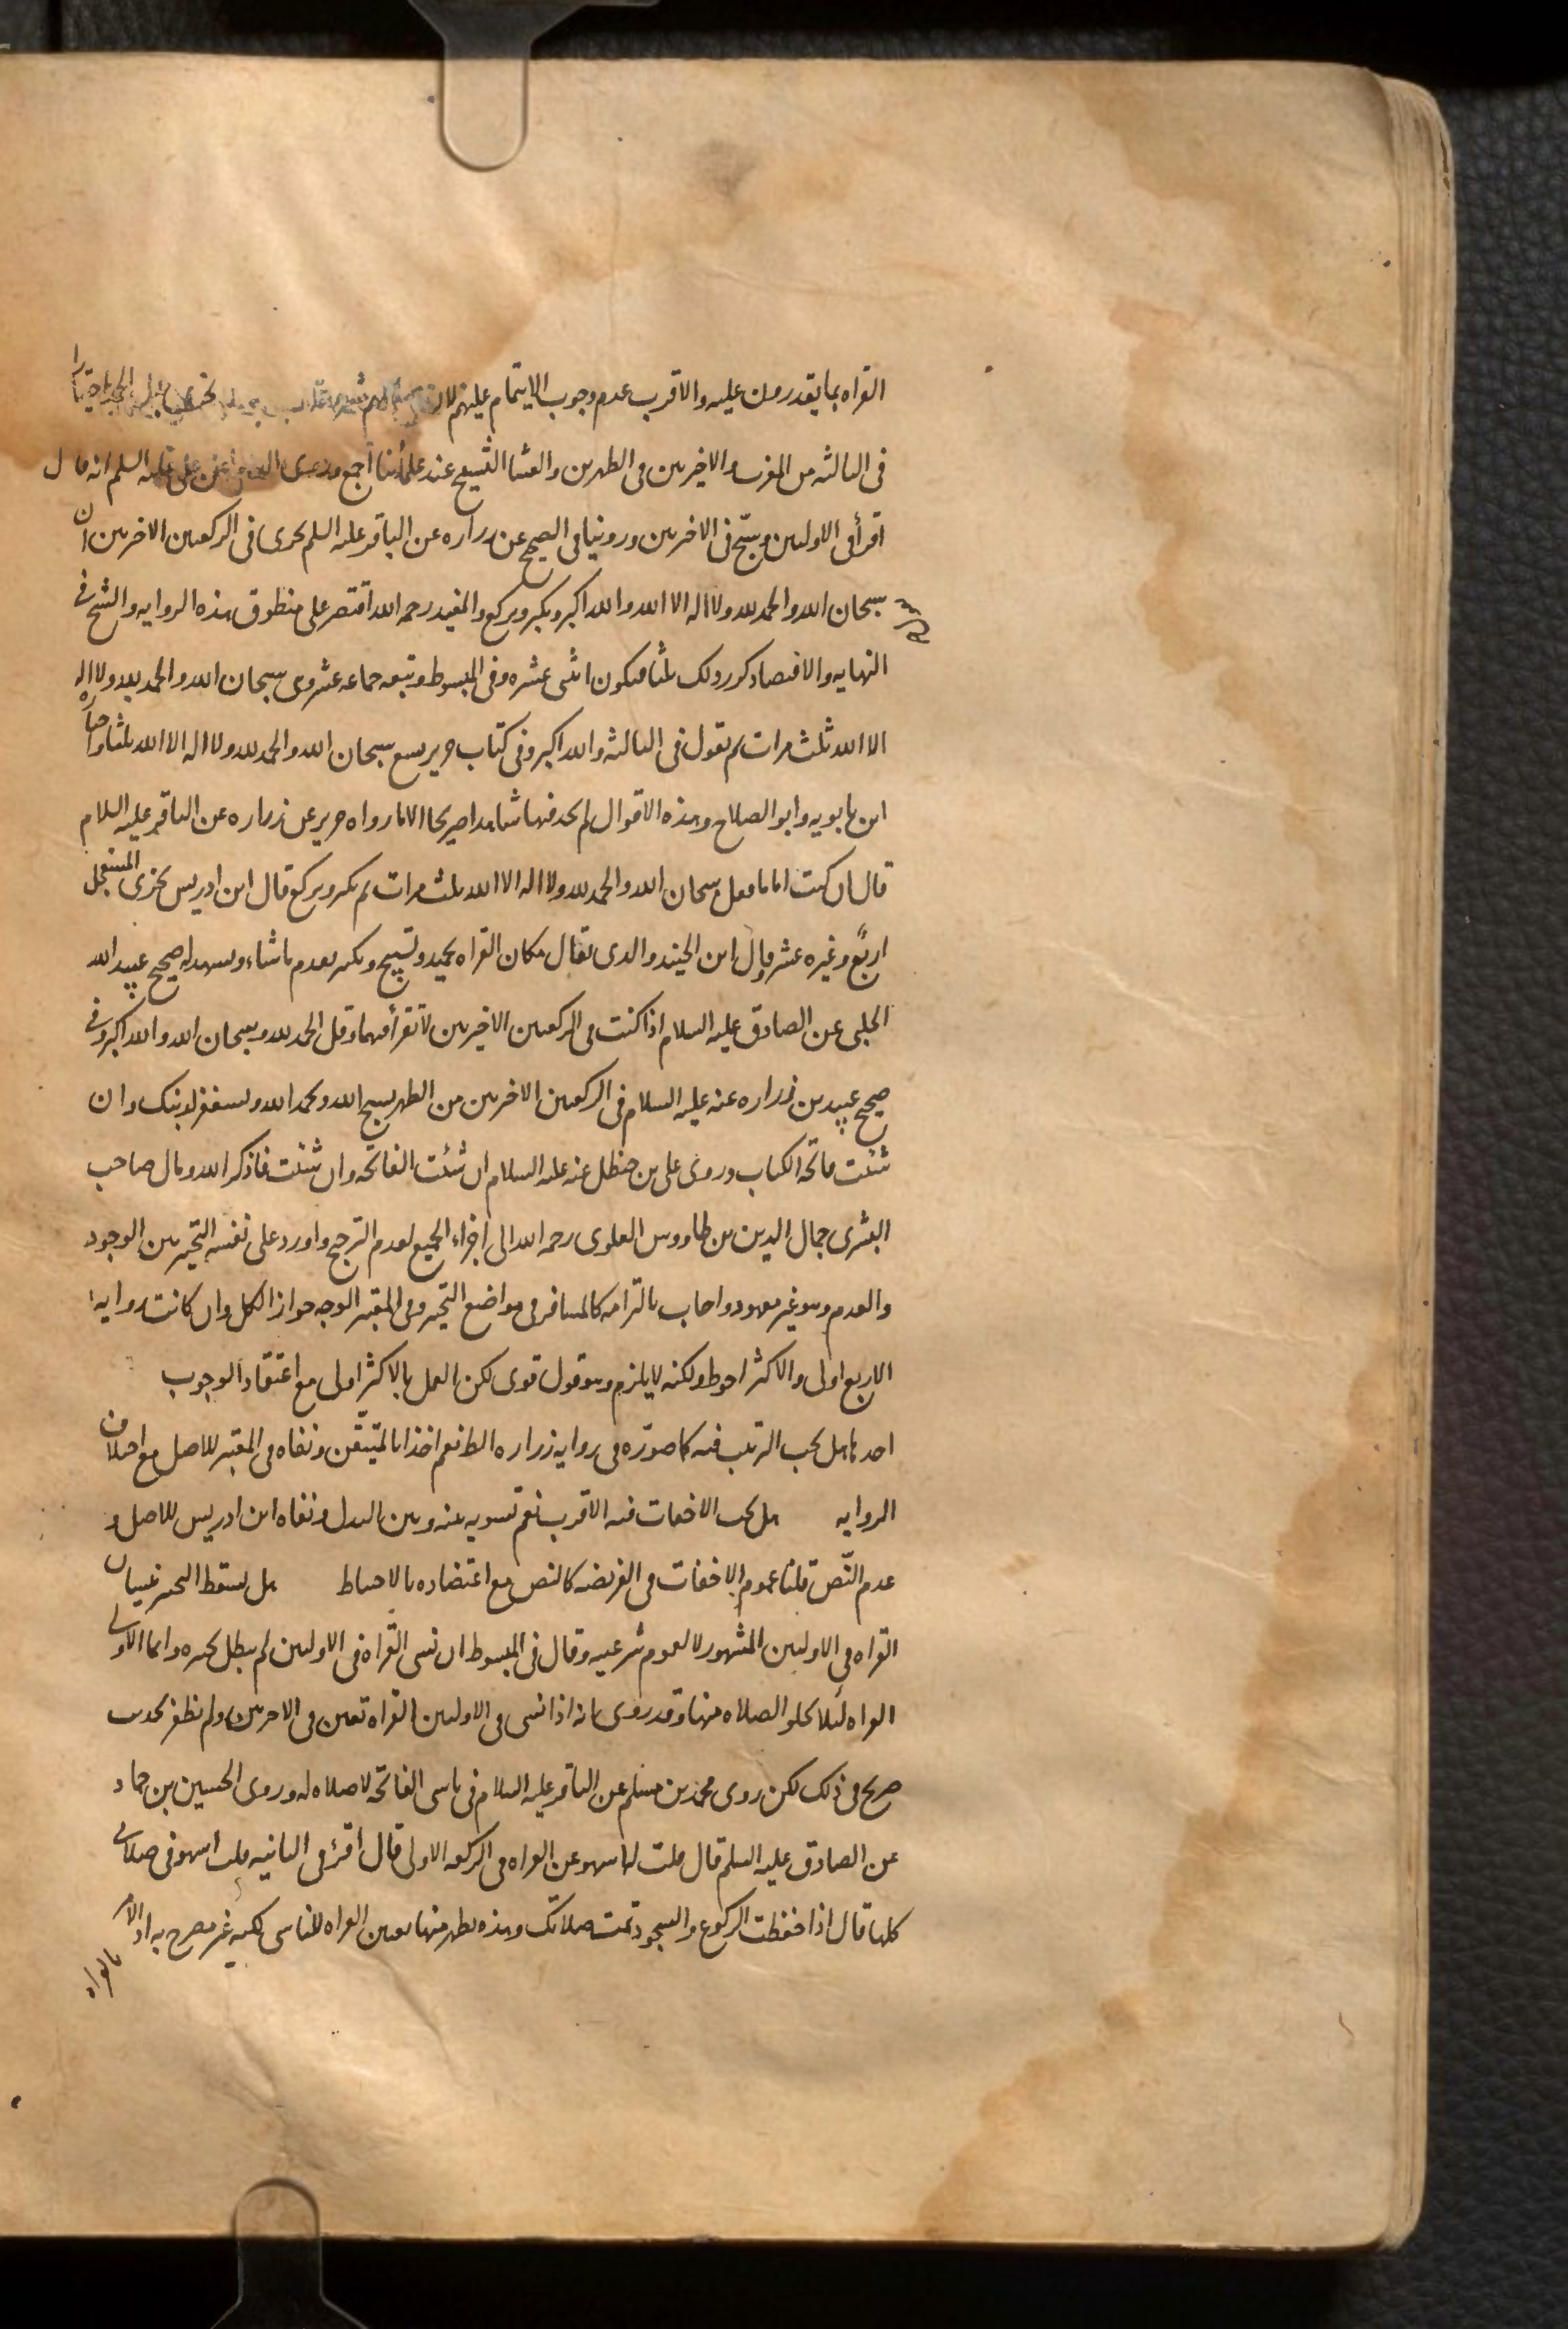 القراه بما يقدرون عليه والاقرب عدم وجوب الايتمام عليهم لان
فى الثالثه من المغرب والاخيرتين من الظهرين والعشا التسبيح عند علمائنا اجمع عن على عليه السلم انه قال
اقرأ فى الاولتين وسبّح فى الاخرتين وروينا فى الصحيح عن زراره عن الباقر عليه السلم يجزى فى الركعتين الاخرتين ان
سبحان الله والحمد لله ولا اله الا الله والله اكبر ويكبر ويركع والمفيد رحمه الله اقتصر على منطوق هذه الروايه والشيخ فى
النهايه والاقتصاد كرر ذلك ثلثا فيكون اثنتى عشره وفى المبسوط وتبعه جماعه عشر وهى سبحان الله والحمد لله ولا اله
الا الله ثلث مرات ثم تقول فى الثالثه والله اكبر وفى كتاب حريز تسع سبحان الله والحمد لله ولا اله الا الله ثلثا واختاره
ابن بابويه وابو الصلاح وهذه الاقوال لم نجد فيها شاهدا صريحا الا ما رواه حريز عن زراره عن الباقر عليه السلام
قال ان كنت اماما فقل سبحان الله والحمد لله ولا اله الا الله ثلث مرات ثم تكبر وتركع قال ابن ادريس يجزى المستعجل
اربع وغيره عشر وقال ابن الجنيد والذى يقال مكان القراه تحميد وتسبيح وتكبير يقدم ما شاء ويشهد له صحيح عبيد الله
الحلبى عن الصادق عليه السلام اذا كنت فى الركعتين الاخيرتين لا تقرأ فيهما وقل الحمد لله وسبحان الله والله اكبر وفى
صحيح عبيد بن زراره عنه عليه السلام فى الركعتين الاخرتين من الظهر تسبح الله وتحمد الله وتستغفر لذنبك وان
شئت فاتحه الكتاب وروى على بن حنظل عنه عليه السلام ان شئت الفاتحه وان شئت فاذكر الله ومال صاحب
البشرى جمال الدين بن طاووس العلوى رحمه الله الى اجزاء الجميع لعدم الترجيح واورد على نفسه التخيير بين الوجود
والعدم وهو غير معهود واجاب بالتزامه كالمسافر فى مواضع التخيير وفى المعتبر الوجه جواز الكل وان كانت روايه
الاربع اولى والاكثر احوط ولكنه لا يلزم وهو قول قوى لكن العمل بالاكثر اولى مع اعتقاد الوجوب
احدها هل يجب الترتيب فيه كما صوّره فى روايه زراره الظ نعم اخذا بالمتيقّن ونفاه فى المعتبر للاصل مع اختلاف
الروايه هل يجب الاخفات فيه الاقرب نعم تسويه بينه وبين البدل ونفاه ابن ادريس للاصل و
عدم النّص قلنا عموم الاخفات فى الفريضه كالنص مع اعتضاده بالاحتياط هل يسقط التخيير بنسيان
القراه فى الاولتين المشهور لا لعموم شرعيته وقال فى المبسوط ان نسى القراه فى الاولتين لم يبطل تخييره وانما الاولى
القراه لئلا تخلو الصلاه منها وقد روى بانه اذا نسى فى الاولتين القراه تعين فى الاخرتين ولم نظفر بحديث
صريح فى ذلك لكن روى محمد بن مسلم عن الباقر عليه السلام فى ناسى الفاتحه لا صلاه له وروى الحسين بن حماد
عن الصادق عليه السلم قال قلت له اسهو عن القراه فى الركعه الاولى قال اقرئ فى الثانيه قلت اسهو فى صلاتى
كلها قال اذا حفظت الركوع والسجود تمت صلاتك وهذه يظهر منها تعين القراه للناسى لكنه غير مصرح به اذ الامر
بالقراه